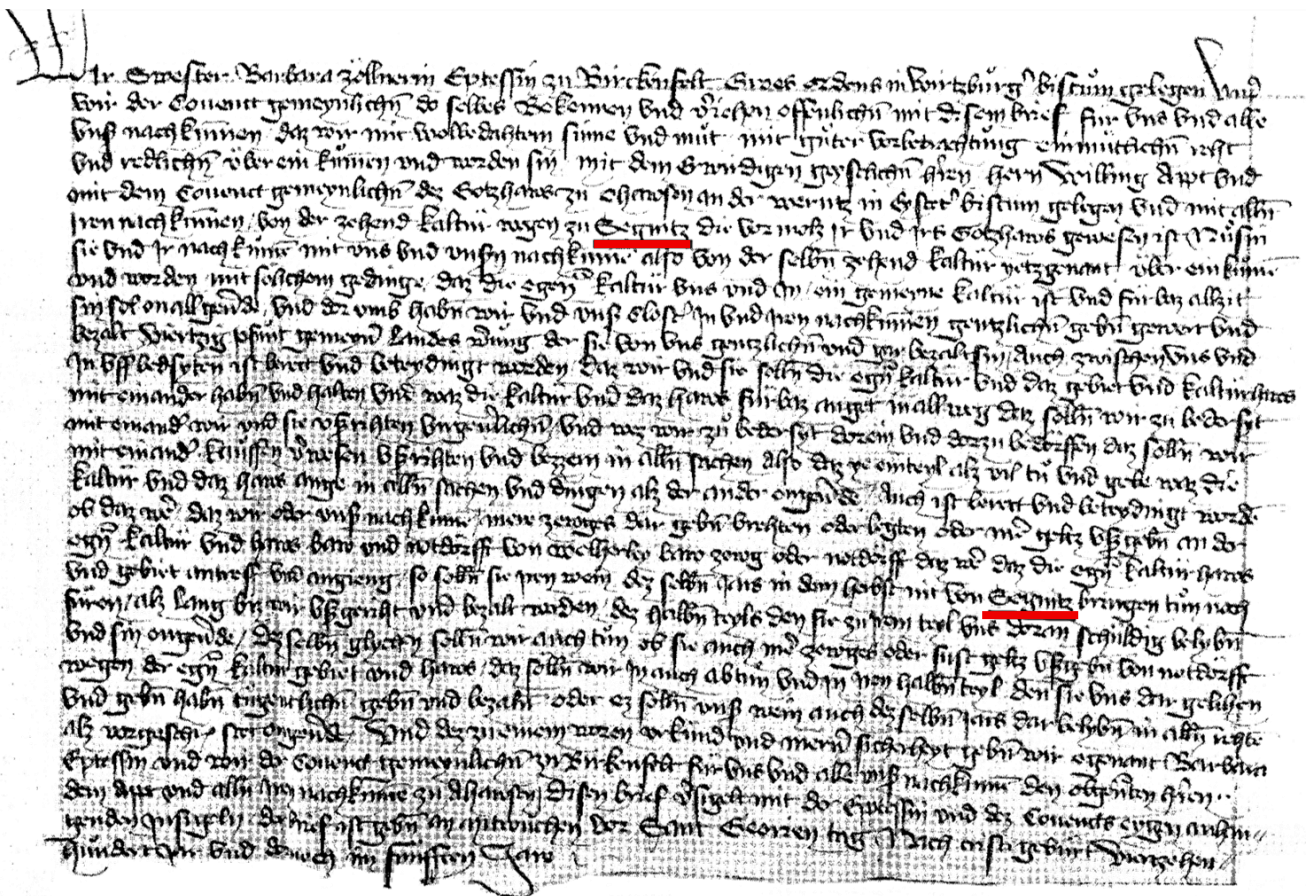 Wir Swester Barbara Zöllnerin Eptessin zu Birckenfelt Grves ordens in Wirtzburg' bistum gelegen vnd
wir der Convent gemeynlichn do selbes Bekennen vnd v'iehen offenlichn mit disem brief für vns vnd alle
vnß nachkumen daz wir mit wolbedahtem sinne vnd müt mit güter vorbetrachtung einmütlichn reht
vnd redlichn über ein kumen vnd worden sin mit dem Erwirdigen geystlichn h'ren hern Willing Appt vnd
mit dem Convent gemeynlichn dez Gotzhaws zu Ahawsen an der Wernitz in Eystet' bistum gelegen vnd mit alln
iren nachkumen von der zehend kaltür wegen zu Segnitz die vor molz ir vnd irs Gotzhaws gewesen ist Nu sin
sie vnd ir nachkume mit vns vnd vnsn nachkume also von der selbn zehend kaltür yetzgenant über ein kume
vnd worden mit sölichem gedinge daz die egen' kaltür vns vnd in ein gemeine kaltür ist vnd fürbaz allzit
sin sol on allgeu'de vnd dor vmb habn wir vnd vnß Closter in vnd iren nachkumen gentzlichn gebn gewert vnd
bezalt viertzig pfunt gemeyn' Landes w'ung der sie von vns gentzlichn vnd gar bezalt sin Auch zwischen vns vnd
in vff bedsyten ist beret vnd beteydingt worden daz wir vnd sie solln die egn' kaltür vnd daz gebiet vnd kaltürhaws
mit einander habn vnd halten vnd waz die kaltür vnd daz haws fürbaz anget in allweg daz solln wir zu bedersyt
mit einand' wir vnd sie vßrichten vngeu'lichn vnd waz wir zü bedersyt dorein vnd dorzu bedörffen daz solln wir
mit einand' kauffen v'wesen vßrihten vnd bezzern in alln sachen also daz ye ein teyl alz vil tü vnd gebe waz die
kaltür vnd daz haws ange in alln sachen vnd dingen alz der ander ongeu'de Auch ist beret vnd beteydingt worde
ob daz wer daz wir oder vnß nachkume mere zewges dar gebn lihten oder legten oder me' geltz vß gebn an der
egn' kaltür vnd haws baw vnd notdorfft von welherley baw zewg oder notdorfft daz we' daz die egn' kaltür haws
vnd gebiet antreff vnd angieng so solln sie iren wein dez selbn jars in dem herbst nit von Segnitz bringen tün noch
füren alz lang biz wir vßgeriht vnd bezalt werden dez halbn teyls den sie zu irem teyl vns doran schuldig belybn
vnd sin ongeu'de dez selbn glychen solln wir auch tün ob sie auch me' zewges oder sust geltz vß gebn von notdorfft
wegen der egn' kaltür gebiet vnd haws daz solln wir in auch abtün vnd in iren halbn teyl den sie vns dar gelihen
vnd gebn habn tugentlichn gebn vnd bezaln oder ez solln vnß wein auch dez selbn jars dar belybn in alln rehte
alz vorgeschr' stet ongeu'de Vnd dez zu einem waren vrkund vnd mere' sicherheyt gebn wir egenant Barbara
Eptessin vnd wir der Convent gemeynlichn zu Birkenfelt für vns vnd alle vnß nachkume den obgen'ten h'ren
dem Appt vnd alln iren nachkume zu Ahawsen disen brief v'sigelt mit der Eptessin vnd dez Convents eygen anhan
genden Insigeln der brief ist gebn an mitwochen vor Sant Georien tag Nach crists geburt viertzehen
hundert jar vnd dornoch im fünfften Jare